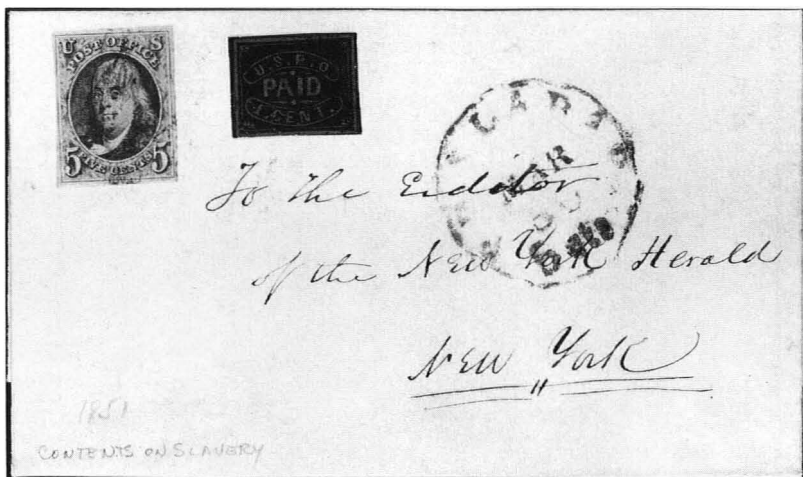 U S
POST OFFICE
5 FIVE CENTS 5
U.S.P.O
PAID
1.CENT.
MAR
To the Eiditor
of the New York Herald
New York
1851
CONTENTS ON SLAVERY